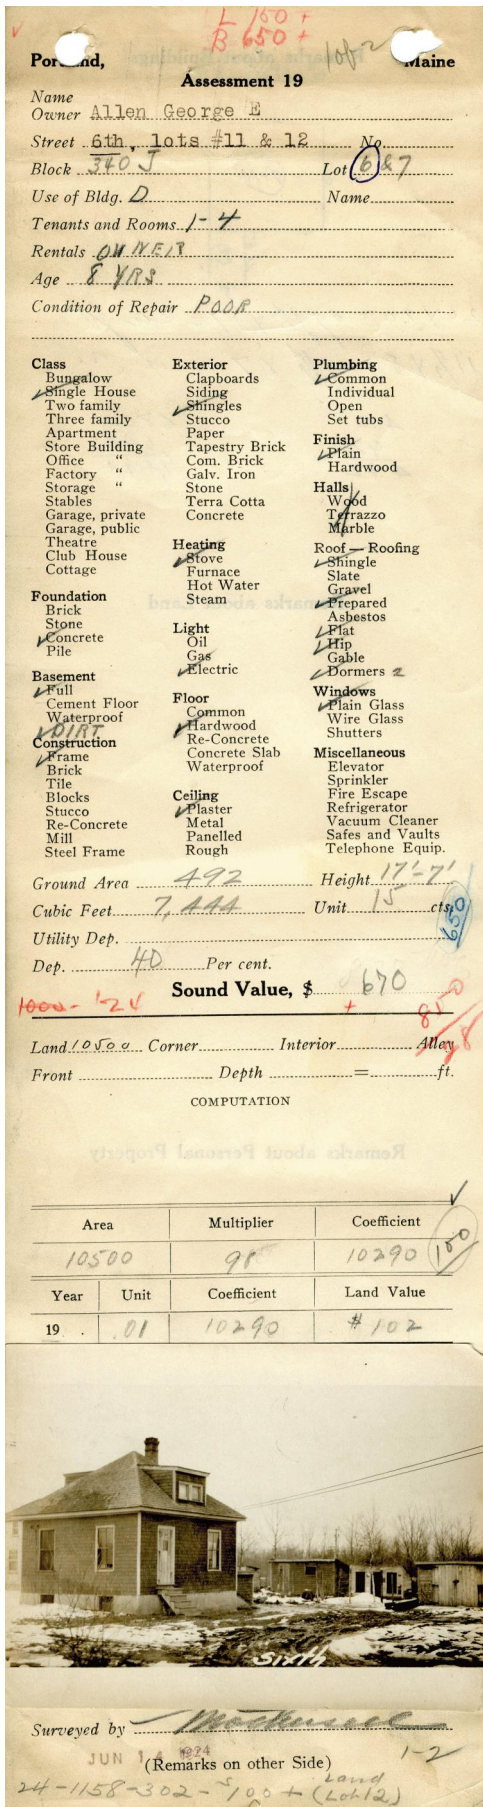 L 150 +
B 650 +
1 of 2
Portland, Maine
Assessment 19
Name
Owner Allen George E
Street 6th, lots #11 & 12 No.
Block 340 J Lot 6 & 7
Use of Bldg. D Name
Tenants and Rooms 1-4
Rentals OWNER
Age 8 YRS
Condition of Repair POOR
Class
Bungalow
Single House
Two family
Three family
Apartment
Store Building
Office "
Factory "
Storage "
Stables
Garage, private
Garage, public
Theatre
Club House
Cottage
Foundation
Brick
Stone
Concrete
Pile
Basement
Full
Cement Floor
Waterproof
DIRT
Construction
Frame
Brick
Tile
Blocks
Stucco
Re-Concrete
Mill
Steel Frame
Exterior
Clapboards
Siding
Shingles
Stucco
Paper
Tapestry Brick
Com. Brick
Galv. Iron
Stone
Terra Cotta
Concrete
Heating
Stove
Furnace
Hot Water
Steam
Light
Oil
Gas
Electric
Floor
Common
Hardwood
Re-Concrete
Concrete Slab
Waterproof
Ceiling
Plaster
Metal
Panelled
Rough
Plumbing
Common
Individual
Open
Set tubs
Finish
Plain
Hardwood
Halls
Wood
Terrazzo
Marble
Roof — Roofing
Shingle
Slate
Gravel
Prepared
Asbestos
Flat
Hip
Gable
Dormers 2
Windows
Plain Glass
Wire Glass
Shutters
Miscellaneous
Elevator
Sprinkler
Fire Escape
Refrigerator
Vacuum Cleaner
Safes and Vaults
Telephone Equip.
Ground Area 492 Height 17'-7'
Cubic Feet 7,444 Unit 15 cts.
650
Utility Dep.
Dep. 40 Per cent.
Sound Value, $ 670
1000 - '24 + 850
Land 10500 Corner Interior Alley
Front Depth = ft.
COMPUTATION
Remarks about Personal Property
Area Multiplier Coefficient
10500 98 10290 150
Year Unit Coefficient Land Value
19 .01 10290 # 102
Sixth
Surveyed by
JUN 14 1924
(Remarks on other Side) 1-2
24-1158-302-$100 + Land
(Lot 12)